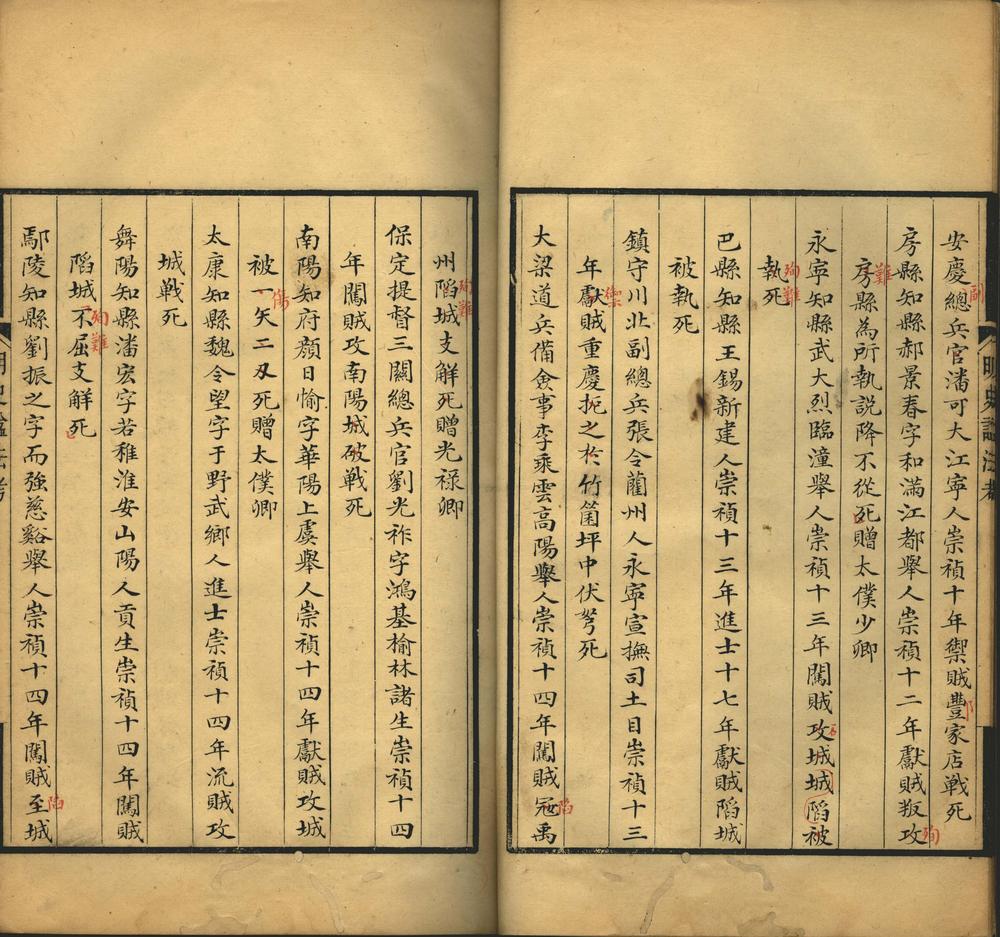 安慶總兵官潘可大江寧人崇禎十年禦賊豐家店戰死
副
房縣知縣郝景春字和滿江都舉人崇禎十二年獻賊叛攻
殉
房縣為所執說降不從死贈太僕少卿
難
永寧知縣武大烈臨潼舉人崇禎十三年闖賊攻城城陷被
執死
殉難
巴縣知縣王錫新建人崇禎十三年進士十七年獻賊陷城
被執死
鎮守川北副總兵張令藺州人永寧宣撫司土目崇禎十三
年獻賊重慶扼之於竹箘坪中伏弩死
禦
大梁道兵備僉事李乘雲高陽舉人崇禎十四年闖賊冦禹
陷
明史諡法考
州陷城支解死贈光祿卿
殉難
保定提督三關總兵官劉光祚字鴻基榆林諸生崇禎十四
年闖賊攻南陽城破戰死
南陽知府顏日愉字華陽上虞舉人崇禎十四年獻賊攻城
被一矢二刄死贈太僕卿
傷
太康知縣魏令望字于野武鄉人進士崇禎十四年流賊攻
城戰死
舞陽知縣潘宏字若稚淮安山陽人貢生崇禎十四年闖賊
陷城不屈支解死
殉難
鄢陵知縣劉振之字而強慈谿舉人崇禎十四年闖賊至城
陷